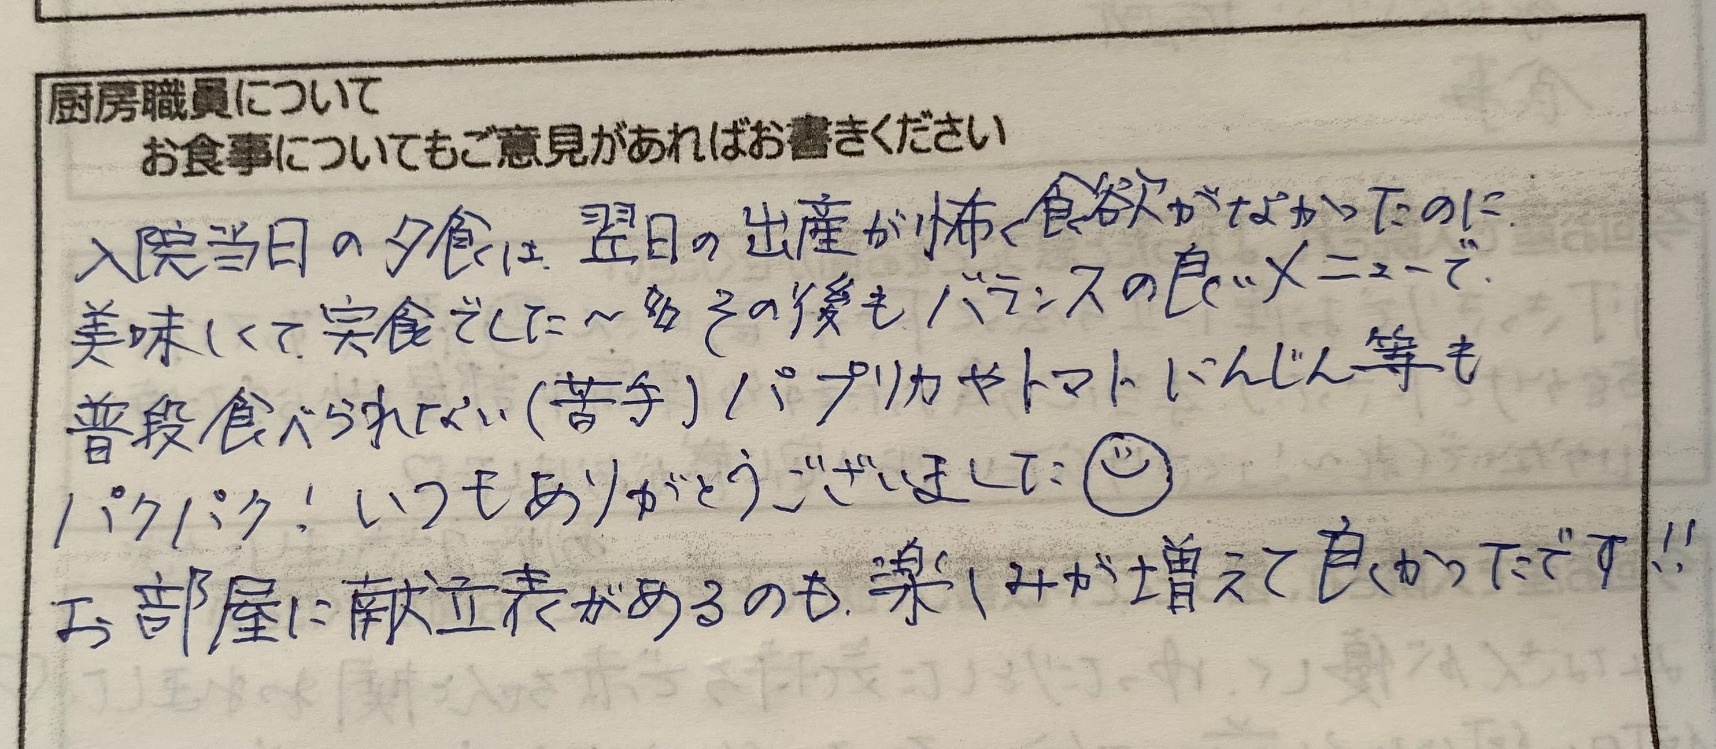 厨房職員について
お食事についてもご意見があればお書きください
入院当日の夕食は、翌日の出産が怖く食欲がなかったのに、
美味しくて、完食でした〜 その後もバランスの良いメニューで、
普段食べられない(苦手)パプリカやトマトにんじん等も
パクパク! いつもありがとうございました
お部屋に献立表があるのも、楽しみが増えて良かったです!!